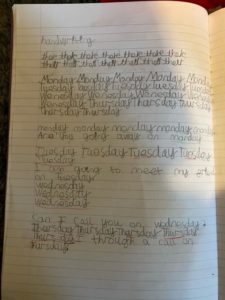 handwriting
that that that that that that that
that that that that that that that
Monday Monday Monday Monday Monday
Tuesday Tuesday Tuesday Tuesday
Wednesday Wednesday Wednesday
Wednesday Thursday Thursday Thursday
Thursday Thursday
monday monday monday monday monday
Are you going away on monday
Tuesday Tuesday Tuesday Tuesday
Tuesday
I am going to meet my
on Tuesday
wednesday
wednesday
wednesday
wednesday
Can I call you on wednesday
Thursday Thursday Thursday Thursday
I through a call on
Thursday